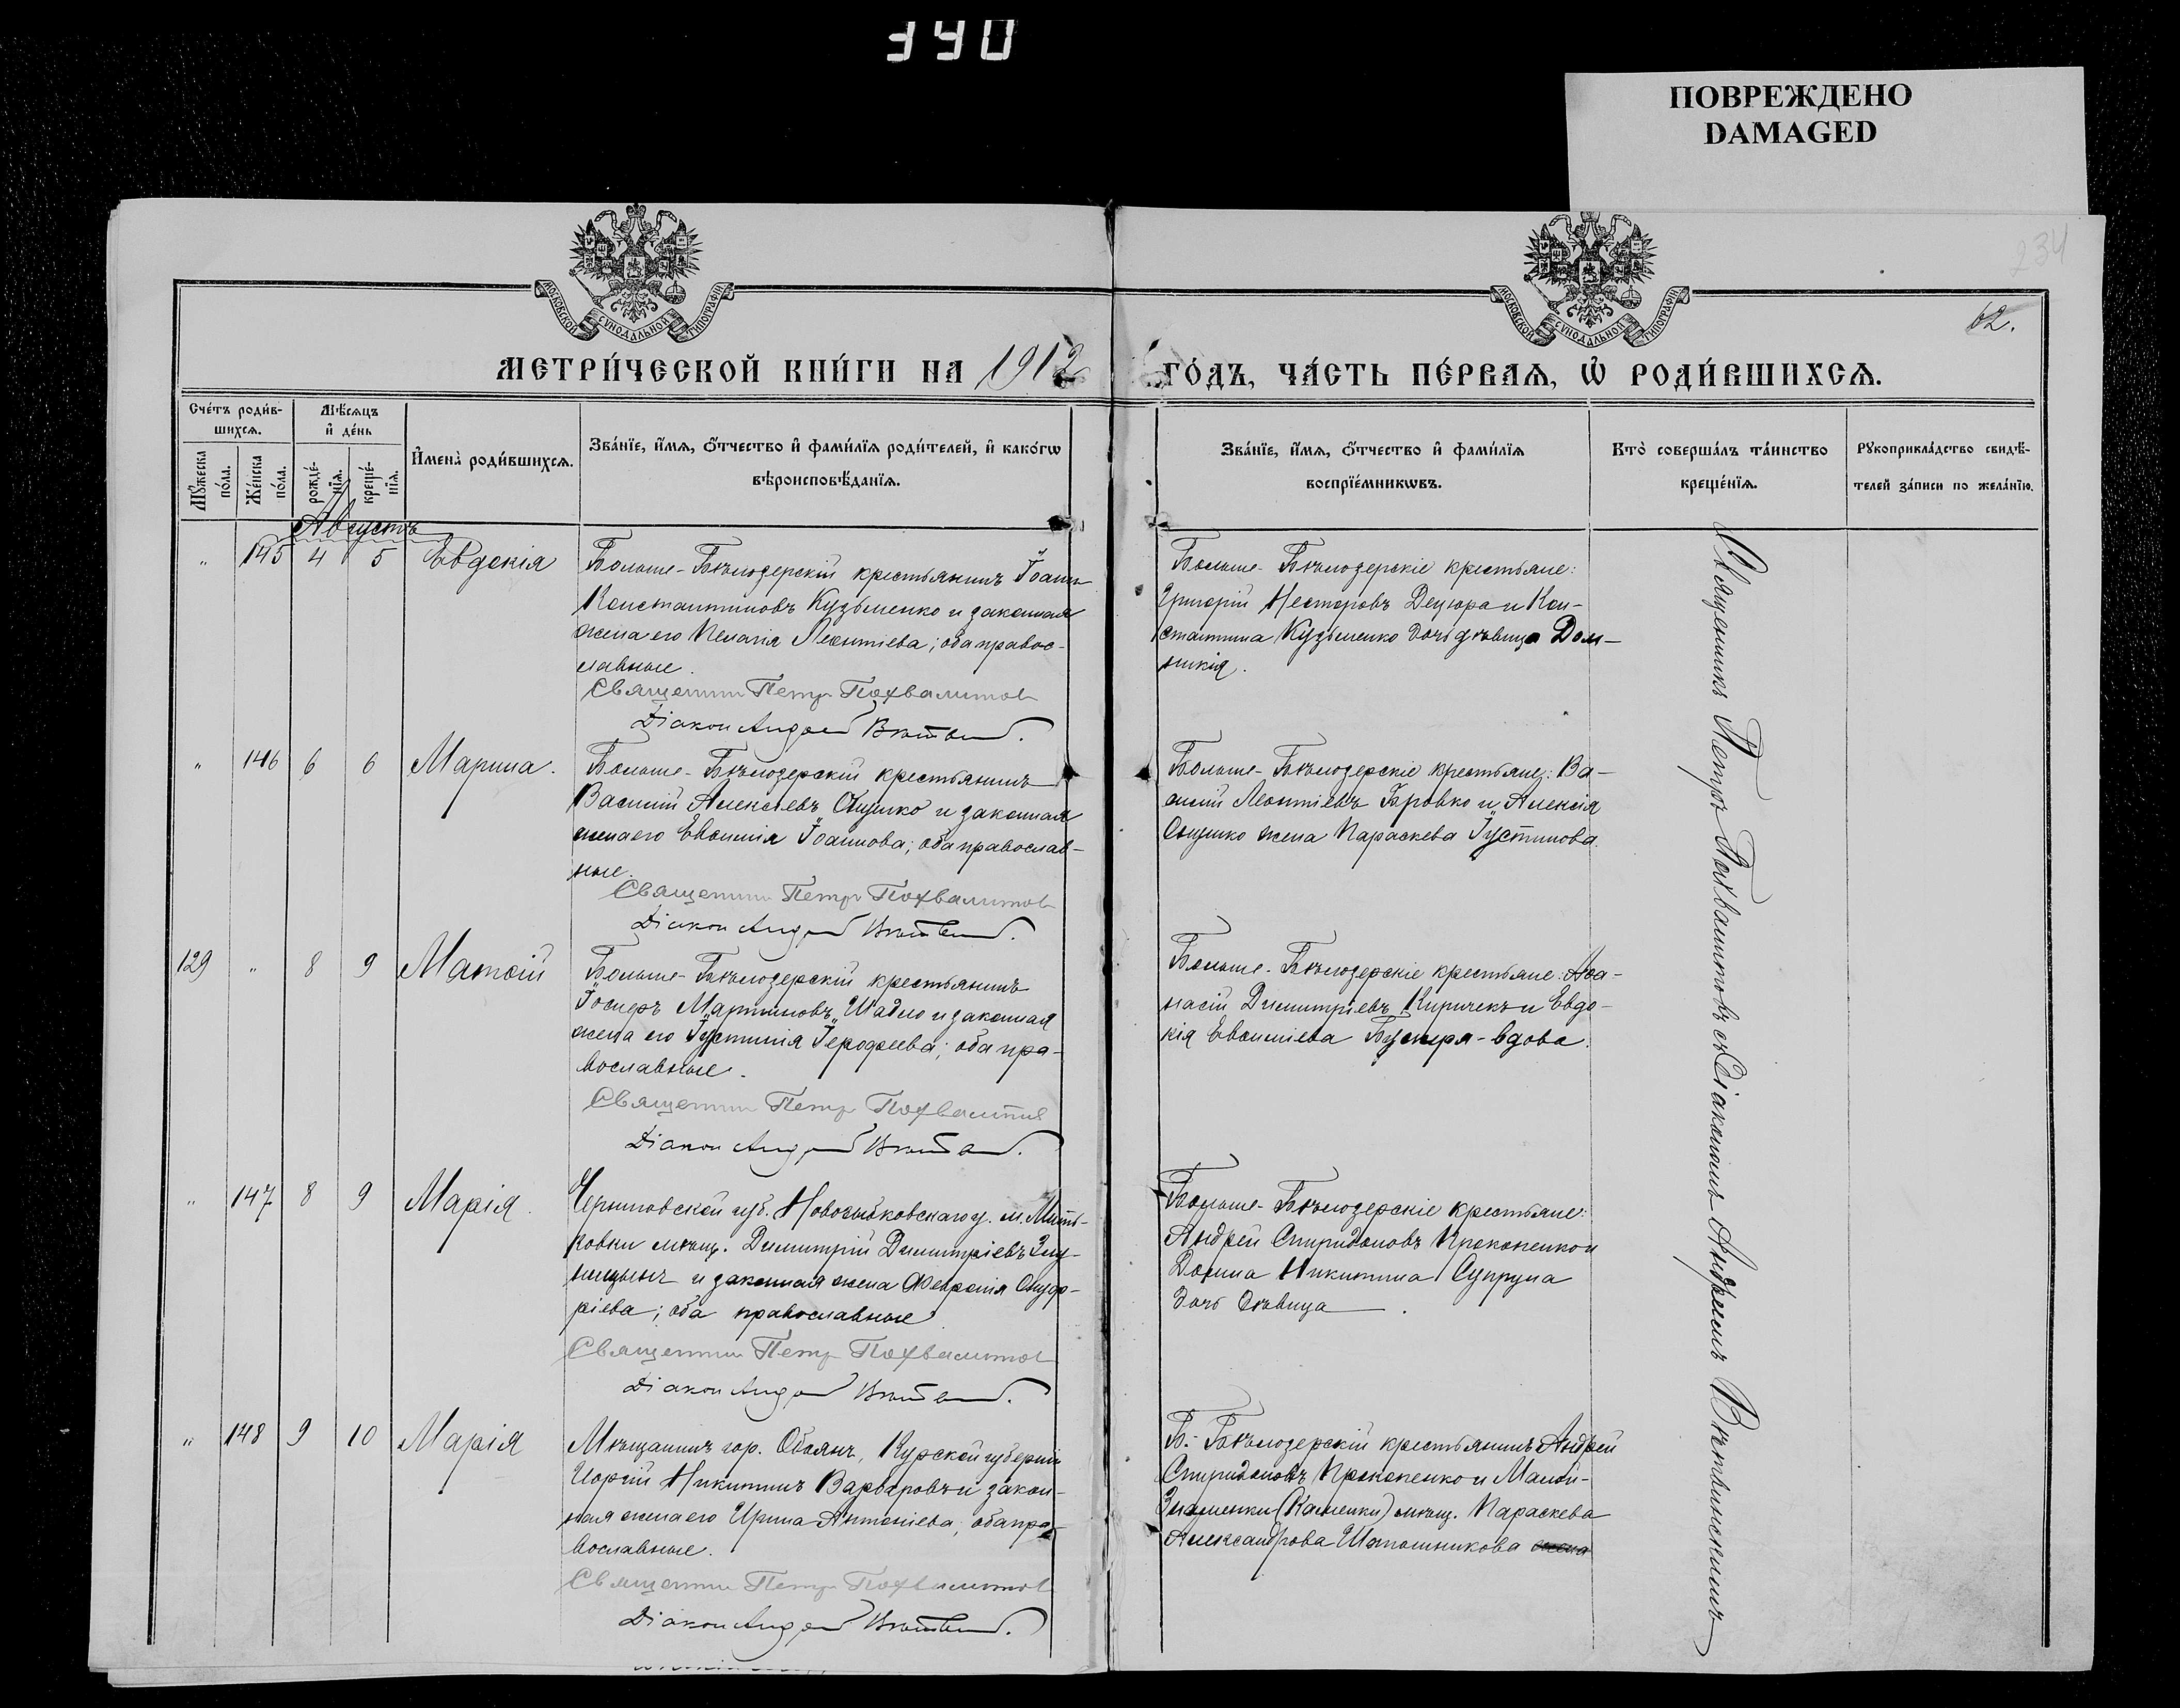 390
ПОВРЕЖДЕНО
DAMAGED
234
62.
МОСКОВСКОЙ СѴНОДАЛЬНОЙ ТИПОГРАФІИ
МОСКОВСКОЙ СѴНОДАЛЬНОЙ ТИПОГРАФІИ
МЕТРИ́ЧЕСКОЙ КНИ́ГИ НА 1912
ГО́ДЪ, ЧА́СТЬ ПЕ́РВАѦ, Ѡ РОДИ́ВШИХСѦ.
Сче́тъ роди́в-
шихсѧ.
Мꙋ́жеска по́ла.
Же́нска по́ла.
Мѣ́сѧцъ
и҆ де́нь
рожде́-нїѧ.
креще́-нїѧ.
И҆мена̀ роди́вшихсѧ.
Зва́нїе, и҆́мѧ, ѻ҆́тчество и҆ фами́лїѧ роди́телей, и҆ како́гѡ
вѣроисповѣ́данїѧ.
Зва́нїе, и҆́мѧ, ѻ҆́тчество и҆ фами́лїѧ
воспрїе́мникѡвъ.
Кто̀ соверша́лъ та́инство
креще́нїѧ.
Рꙋкоприкла́дство свидѣ́-
телей за́писи по жела́нїю.
Августъ
" 145 4 5 Евдокія
Больше-Бѣлозерскій крестьянинъ Іоаннъ
Константиновъ Кузьменко и законная
жена его Пелагія Леонтіева; оба правос-
лавные.
Священник Петр Похвалитов
Діакон Андрей
Больше-Бѣлозерскіе крестьяне:
Григорій Несторовъ Децюра и Кон-
стантина Кузьменко дочь дѣвица Дом-
никія.
" 146 6 6 Марина.
Больше-Бѣлозерскій крестьянинъ
Василій Алексіевъ Сышко и законная
жена его Евфимія Іоаннова; оба православ-
ные.
Священник Петр Похвалитов
Діакон Андрей
Больше-Бѣлозерскіе крестьяне: Ва-
силій Леонтіевъ Бровко и Алексія
жена Параскева Іустинова.
129 " 8 9 Матѳій
Больше-Бѣлозерскій крестьянинъ
Іосифъ Мартиновъ Шадло и законная
жена его Іустинія Іерофеева; оба пра-
вославные.
Священник Петр Похвалитов
Діакон Андрей
Больше-Бѣлозерскіе крестьяне: Аѳа-
насій Димитріевъ Киричекъ и Евдо-
кія Евфиміева вдова.
" 147 8 9 Марія.
Черниговской губ. Новозыбковскаго у. м. Мить-
ковки мѣщ. Димитрій Димитріевъ
и законная жена Февронія Онуф-
ріева; оба православные
Священник Петр Похвалитов
Діакон Андрей
Больше-Бѣлозерскіе крестьяне:
Андрей Спиридоновъ Прокопенко и
Домна Никитина Супруна
дочь дѣвица.
" 148 9 10 Марія
Мѣщанинъ гор. Обоянь, Курской губерніи
Никитинъ Варваровъ и закон-
ная жена его Ирина Антоніева; оба пра-
вославные.
Священник Петр Похвалитов
Діакон Андрей
Б.-Бѣлозерскій крестьянинъ Андрей
Спиридоновъ Прокопенко и Малой-
Знаменки (Каменки) мѣщ. Параскева
Александрова
Священникъ Петръ Похвалитовъ съ Діакономъ Андреемъ Вѣтвинскимъ